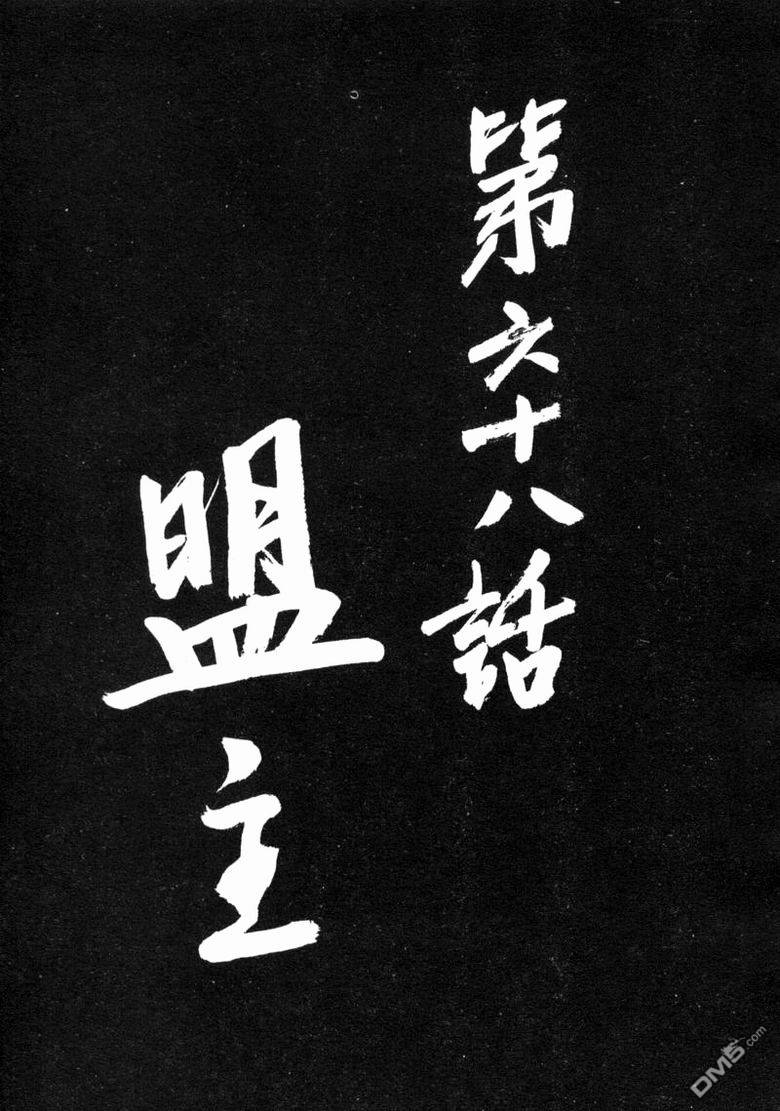 第六十八話
盟主
DM5.com